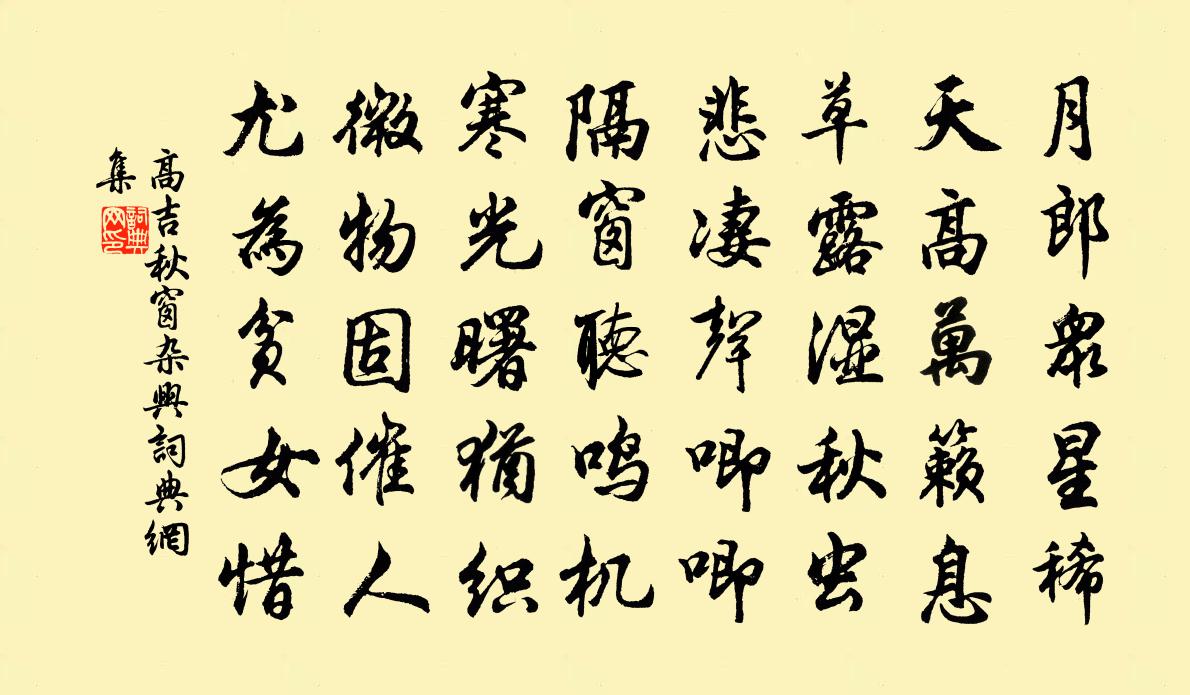 月郎眾星稀
天高萬籟息
草露湿秋虫
悲凄聲唧唧
隔窗聽鸣机
寒光曙猶织
微物固催人
尤為貧女惜
高吉秋窗杂興詞典網
集
詞典
网印